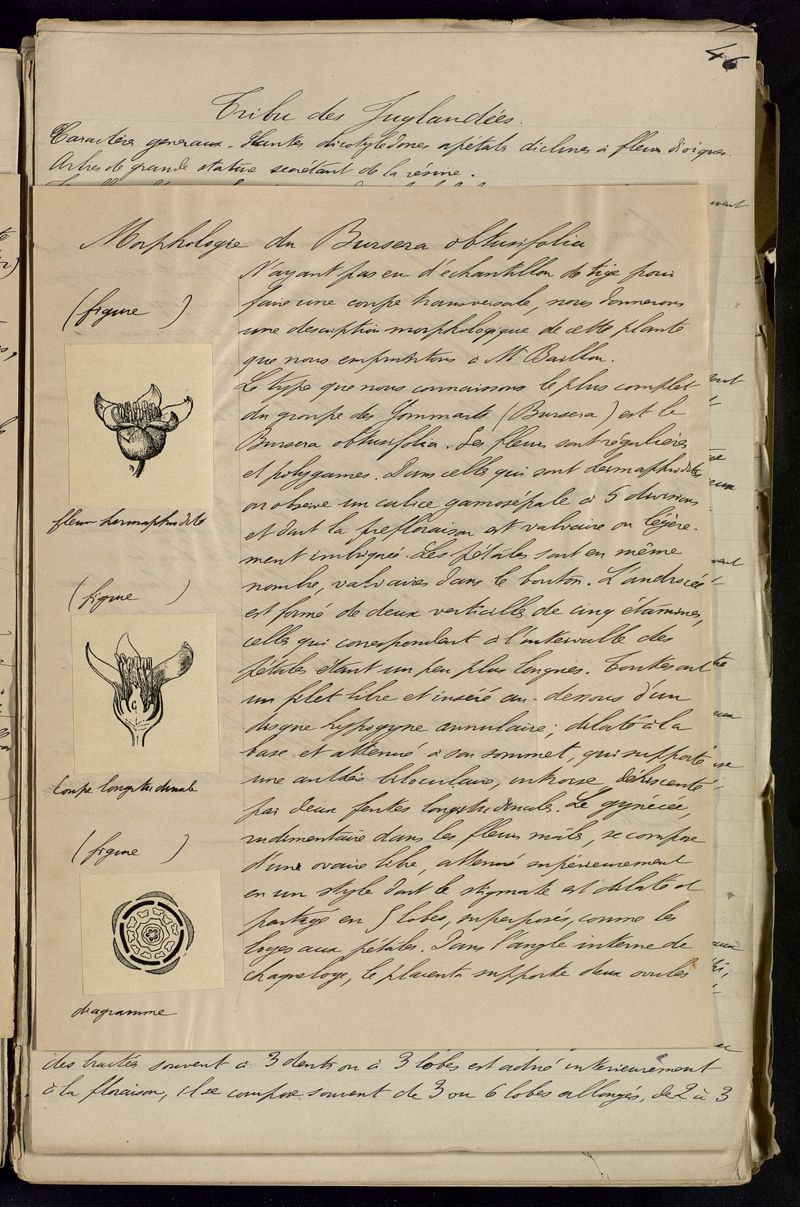 46
Tribu des Juglandées.
Caractères generaux. Plantes dicotylédones apétales diclines à fleurs dioiques.
Arbres de grande stature secrétant de la résine.
Morphologie du Bursera obtusifolia
N'ayant pas eu d'échantillon de tige pour
faire une coupe transversale, nous donnerons
une description morphologique de cette plante
que nous empruntons à Mr Baillon.
Le type que nous connaissons le plus complet
du groupe des Gommarts (Bursera) est le
Bursera obtusifolia. Les fleurs sont régulières
et polygames. Dans celles qui sont hermaphrodites
on observe un calice gamosépale à 5 divisions
et dont la préfloraison est valvaire ou légère-
ment imbriquée. Les pétales sont en même
nombre, valvaires dans le bouton. L'androcée
est formé de deux verticilles de cinq étamines,
celles qui correspondent à l'intervalle des
pétales étant un peu plus longues. Toutes ont
un filet libre et inséré au-dessous d'un
disque hypogyne annulaire; dilaté à la
base et attenué à son sommet, qui supporte
une anthère biloculaire, introrse, déhiscente
par deux fentes longitudinales. Le gynécée,
rudimentaire dans les fleurs mâles, se compose
d'une ovaire libre, attenué supérieurement
en un style dont le stigmate est dilaté et
partagé en 5 lobes, superposés, comme les
loges aux pétales. Dans l'angle interne de
chaque loge, le placenta supporte deux ovules
(figure )
fleur hermaphrodite
(figure )
Coupe longitudinale
(figure )
diagramme
des bractés souvent à 3 dents ou à 3 lobes est adné interieurement
à la floraison, il se compose souvent de 3 ou 6 lobes allongés, de 2 à 3